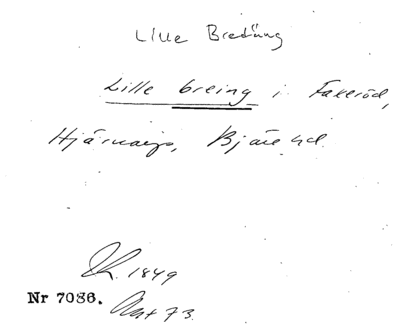 Lille Bredäng
Lille breing i Fakeröd,
Hjärnarps, Bjäre hd.
1849
Nr 7086. Akt 73.